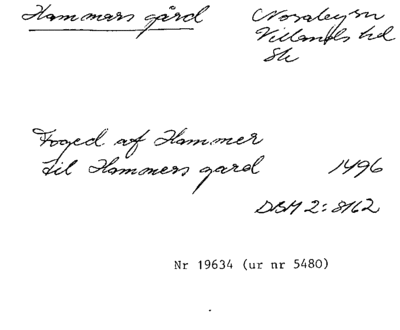 Hammars gård
Nosaby sn
Villands hd
Sk
Foged af Hammer
til Hammers gard 1496
DBH 2: 8162
Nr 19634 (ur nr 5480)